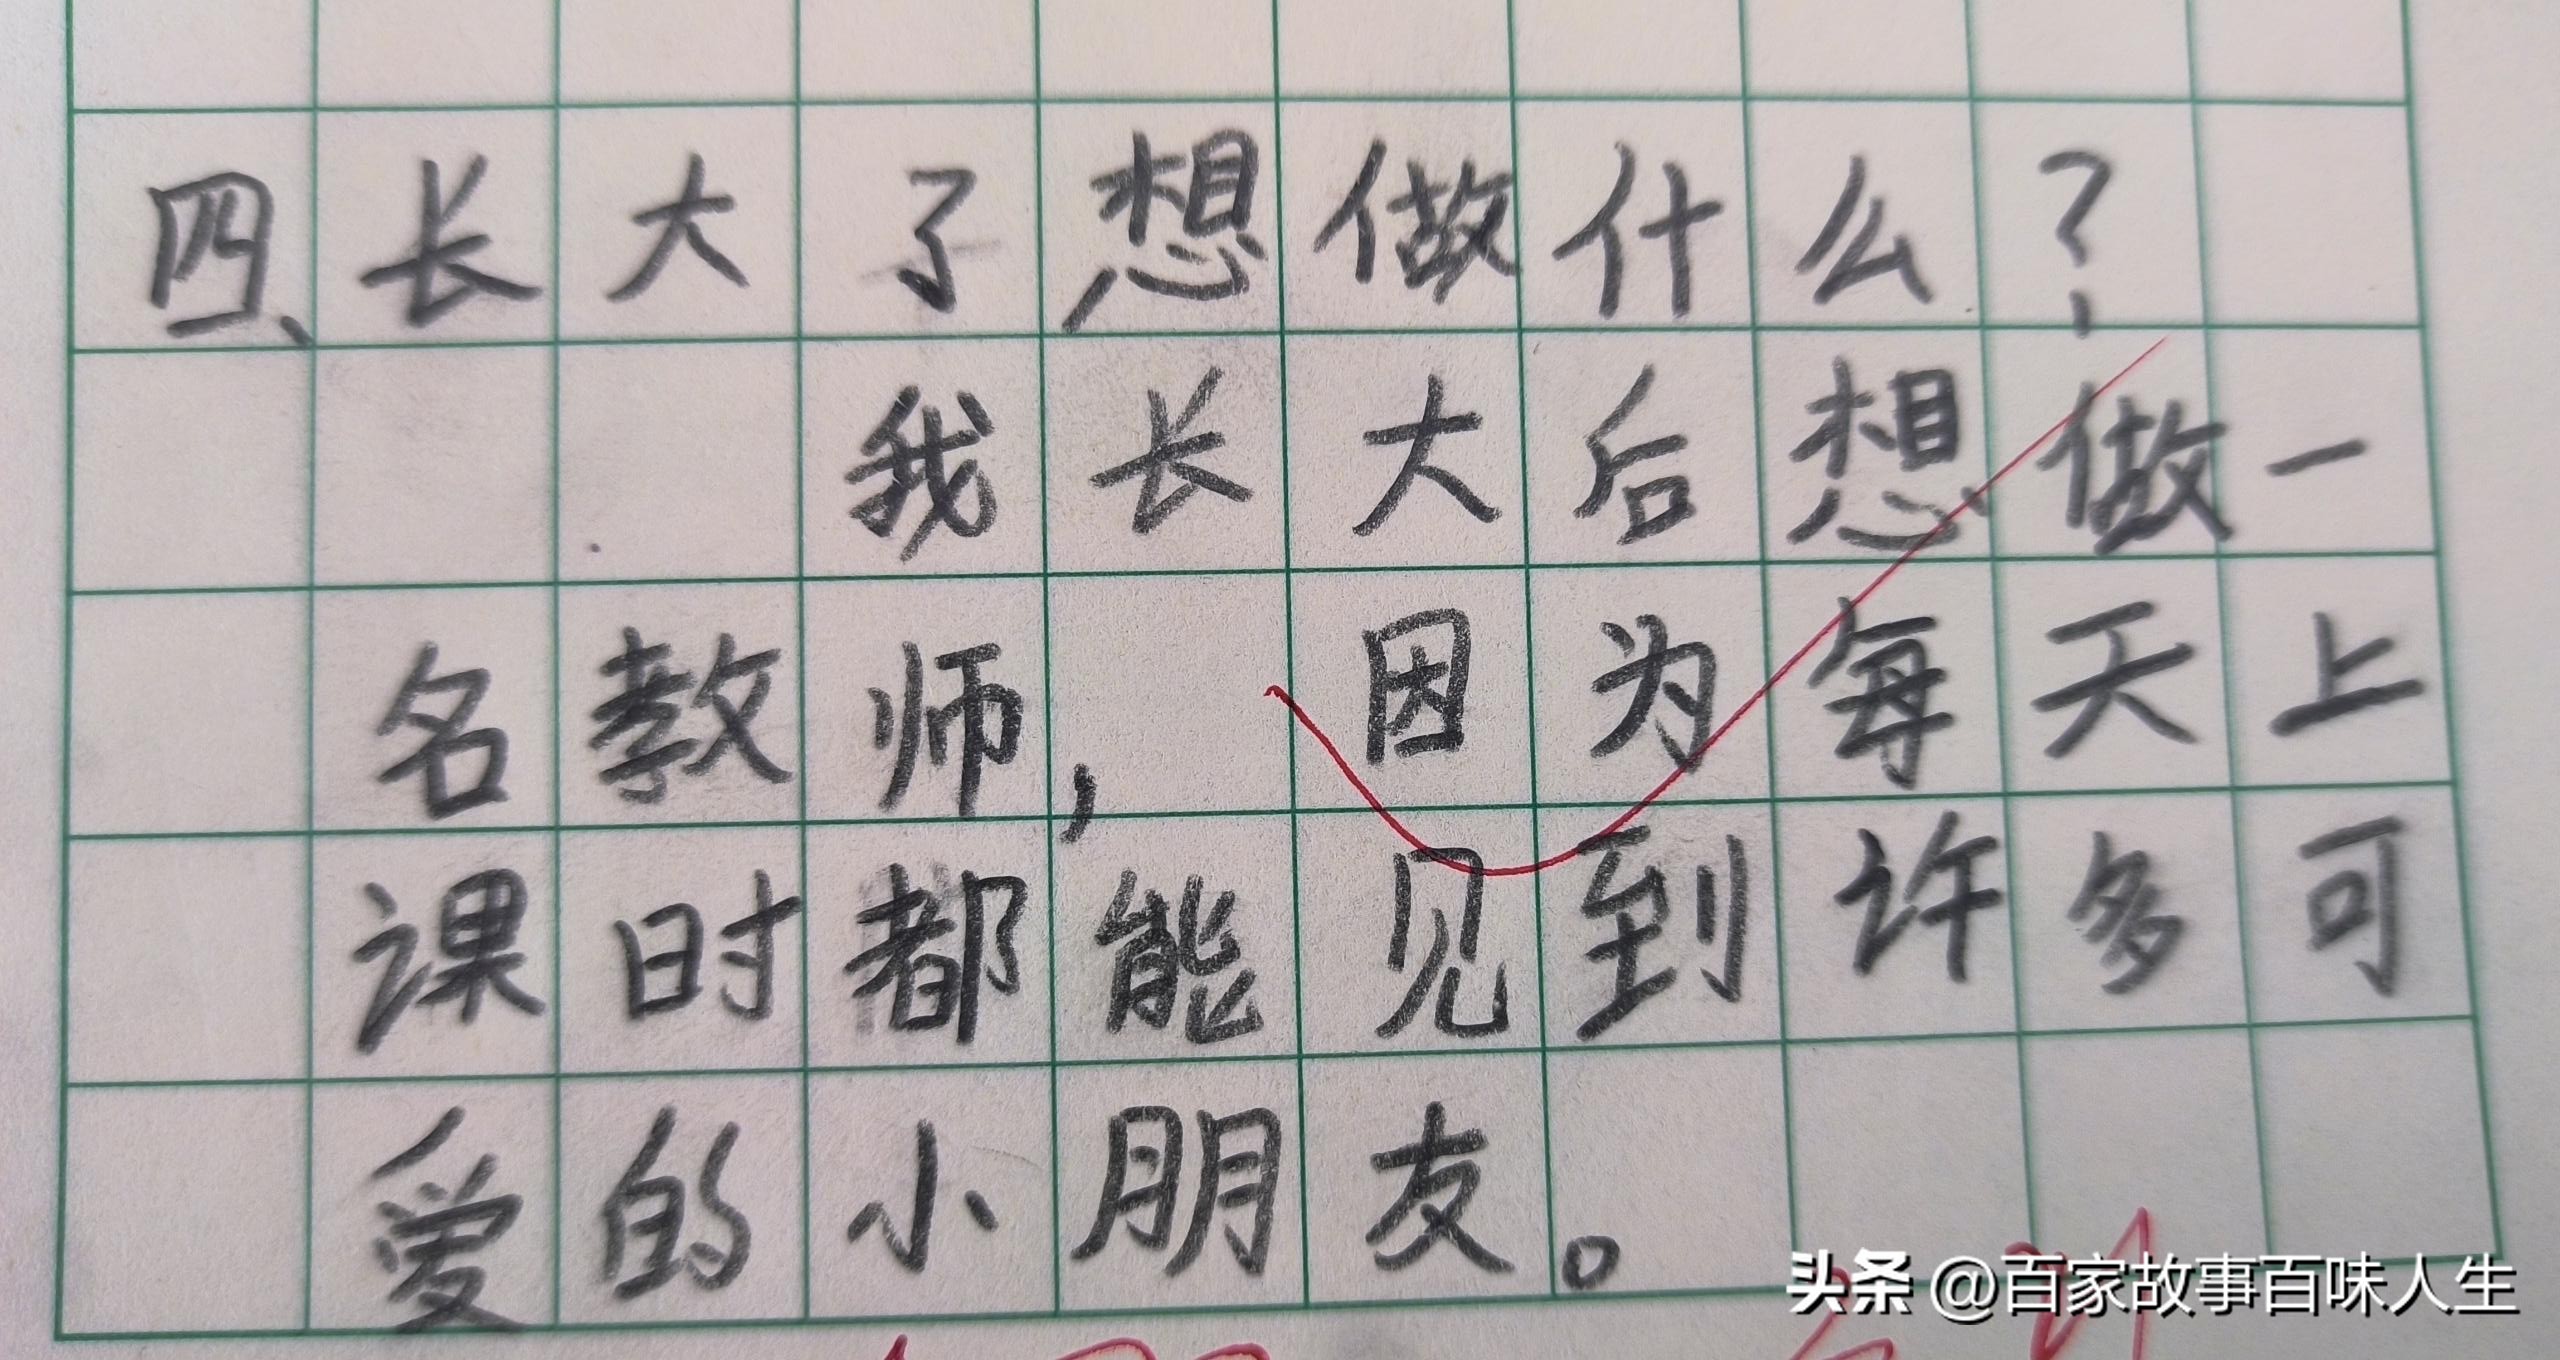 四、长大了想做什么?
我长大后想做一
名教师,因为每天上
课时都能见到许多可
爱的小朋友。
头条 @百家故事百味人生